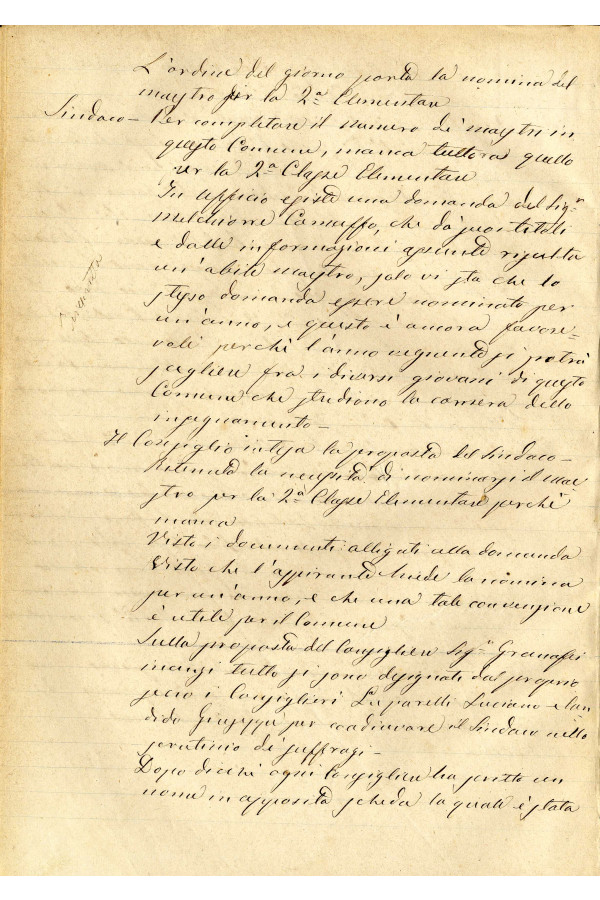 L'ordine del giorno porta la nomina del
maestro per la 2ª Elementare
Sindaco - Per completare il numero di maestri in
questo Comune, manca tuttora quello
per la 2ª Classe Elementare
In Ufficio esiste una domanda del Sigr
Melchiorre che dà
e dalle informazioni assunte risulta
un'abile maestro, solo vi sta che lo
stesso domanda essere nominato per
un'anno, e questo è ancora favore=
vole perchè l'anno vegnente si potrà
scegliere fra i diversi giovani di questo
Comune che studiono la carriera dello
insegnamento -
Il Consiglio intesa la proposta del Sindaco -
Ritenuta la necessità di nominarsi il mae
stro per la 2ª Classe Elementare perchè
manca
Visto i documenti alligati alla domanda
Visto che l'aspirante chiede la nomina
per un'anno, e che una tale convenzione
è utile per il Comune
Sulla proposta del Consigliere Sigr Granafei
inanzi tutto si sono designati dal proprio
seno i Consiglieri Luparelli Luciano e Can
dido Giuseppe per coadiuvare il Sindaco nello
scrutinio di suffragi -
Dopo dicchè ogni Consigliere ha scritto un
nome in apposita scheda la quale è stata